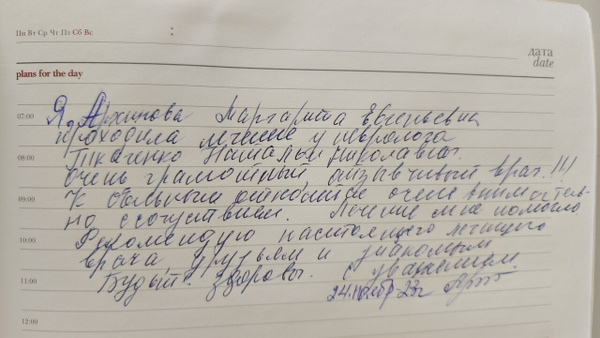 Пн Вт Ср Чт Пт Сб Вс
дата
date
plans for the day
07:00
Я, Архипова Маргарита Евгеньевна
проходила лечение у невролога
08:00
Ткаченко Натальи Николаевны.
Очень грамотный отзывчивый врач!!!
09:00
К больным относится очень вниматель-
но с сочуствием. Лечение мне помогло.
10:00
Рекомендую настоящего
врача друзьям и знакомым
11:00
Будьте здоровы. С уважением
24. 23г
12:00